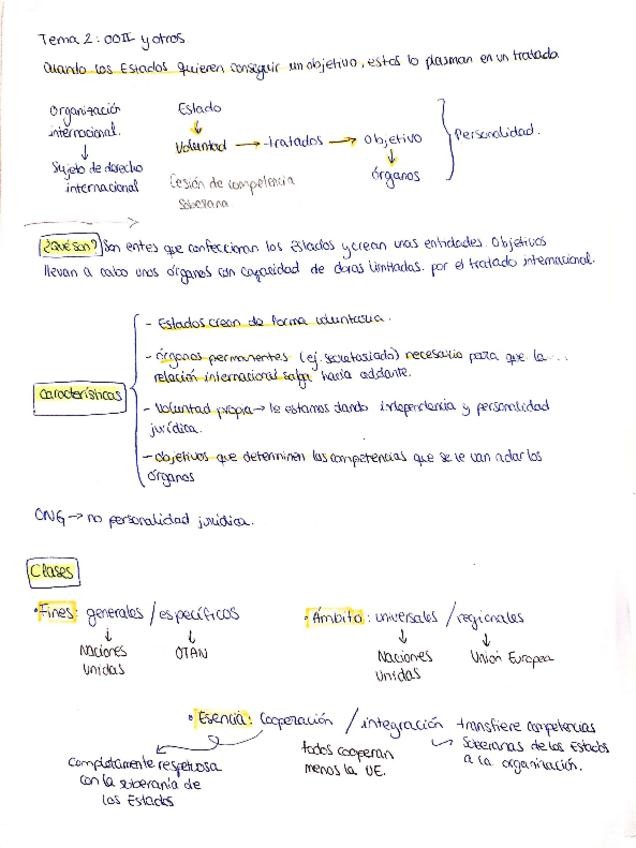 Tema 2: OOII y otros.
Cuando los Estados quieren conseguir un objetivo, estos lo plasman en un tratado
Organización
internacional.
↓
Sujeto de derecho
internacional
Estado
↓
Voluntad → tratados → objetivo
↓
órganos
Cesión de competencia
soberana
Personalidad.
¿Qué son? Son entes que confeccionan los Estados y crean unas entidades. Objetivos
llevan a cabo unos órganos con capacidad de obras limitadas. por el tratado internacional.
Características
- Estados crean de forma voluntaria.
- órganos permanentes (ej. secretariado) necesario para que la ...
relación internacional salga hacia adelante.
- Voluntad propia → le estamos dando independencia y personalidad
jurídica.
- objetivos que determinen las competencias que se le van a dar los
órganos
ONG → no personalidad jurídica.
Clases
• Fines: generales / específicos
↓ ↓
Naciones
Unidas
OTAN
• Ámbito: universales / regionales
↓ ↓
Naciones
Unidas
Unión Europea
• Esencia: Cooperación / integración transfiere competencias
soberanas de los Estados
a la organización.
Completamente respetuosa
con la soberanía de
los Estados
todos cooperan
menos la UE.